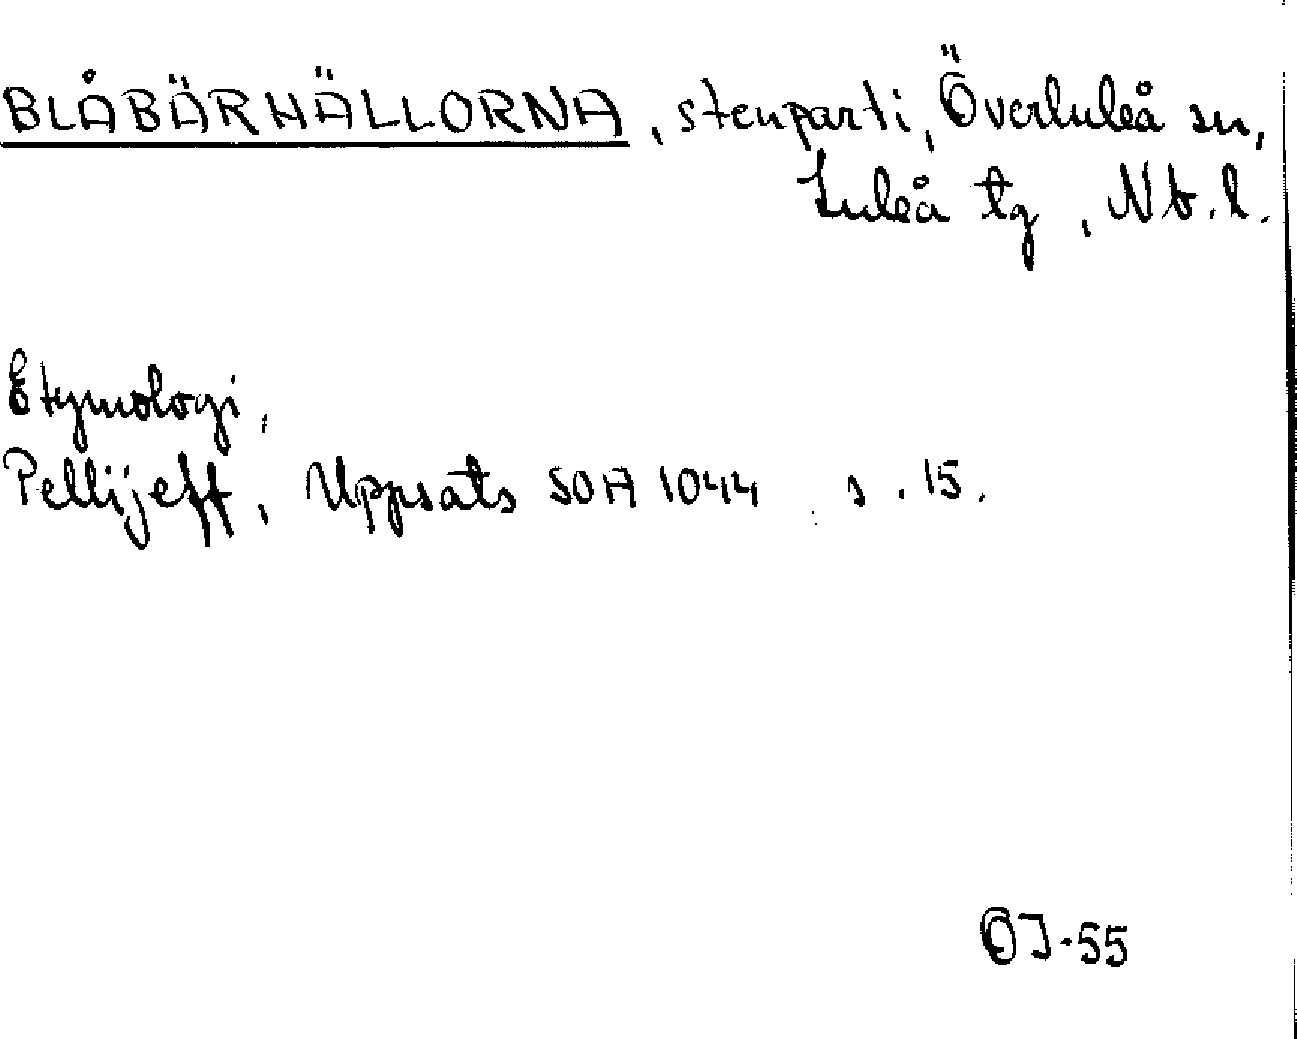 BLÅBÄRHÄLLORNA, stenparti, Överluleå sn,
Luleå tg, Nb.l.
Etymologi,
Pellijeff, Uppsats SOA 1044 s. 15.
OJ-55